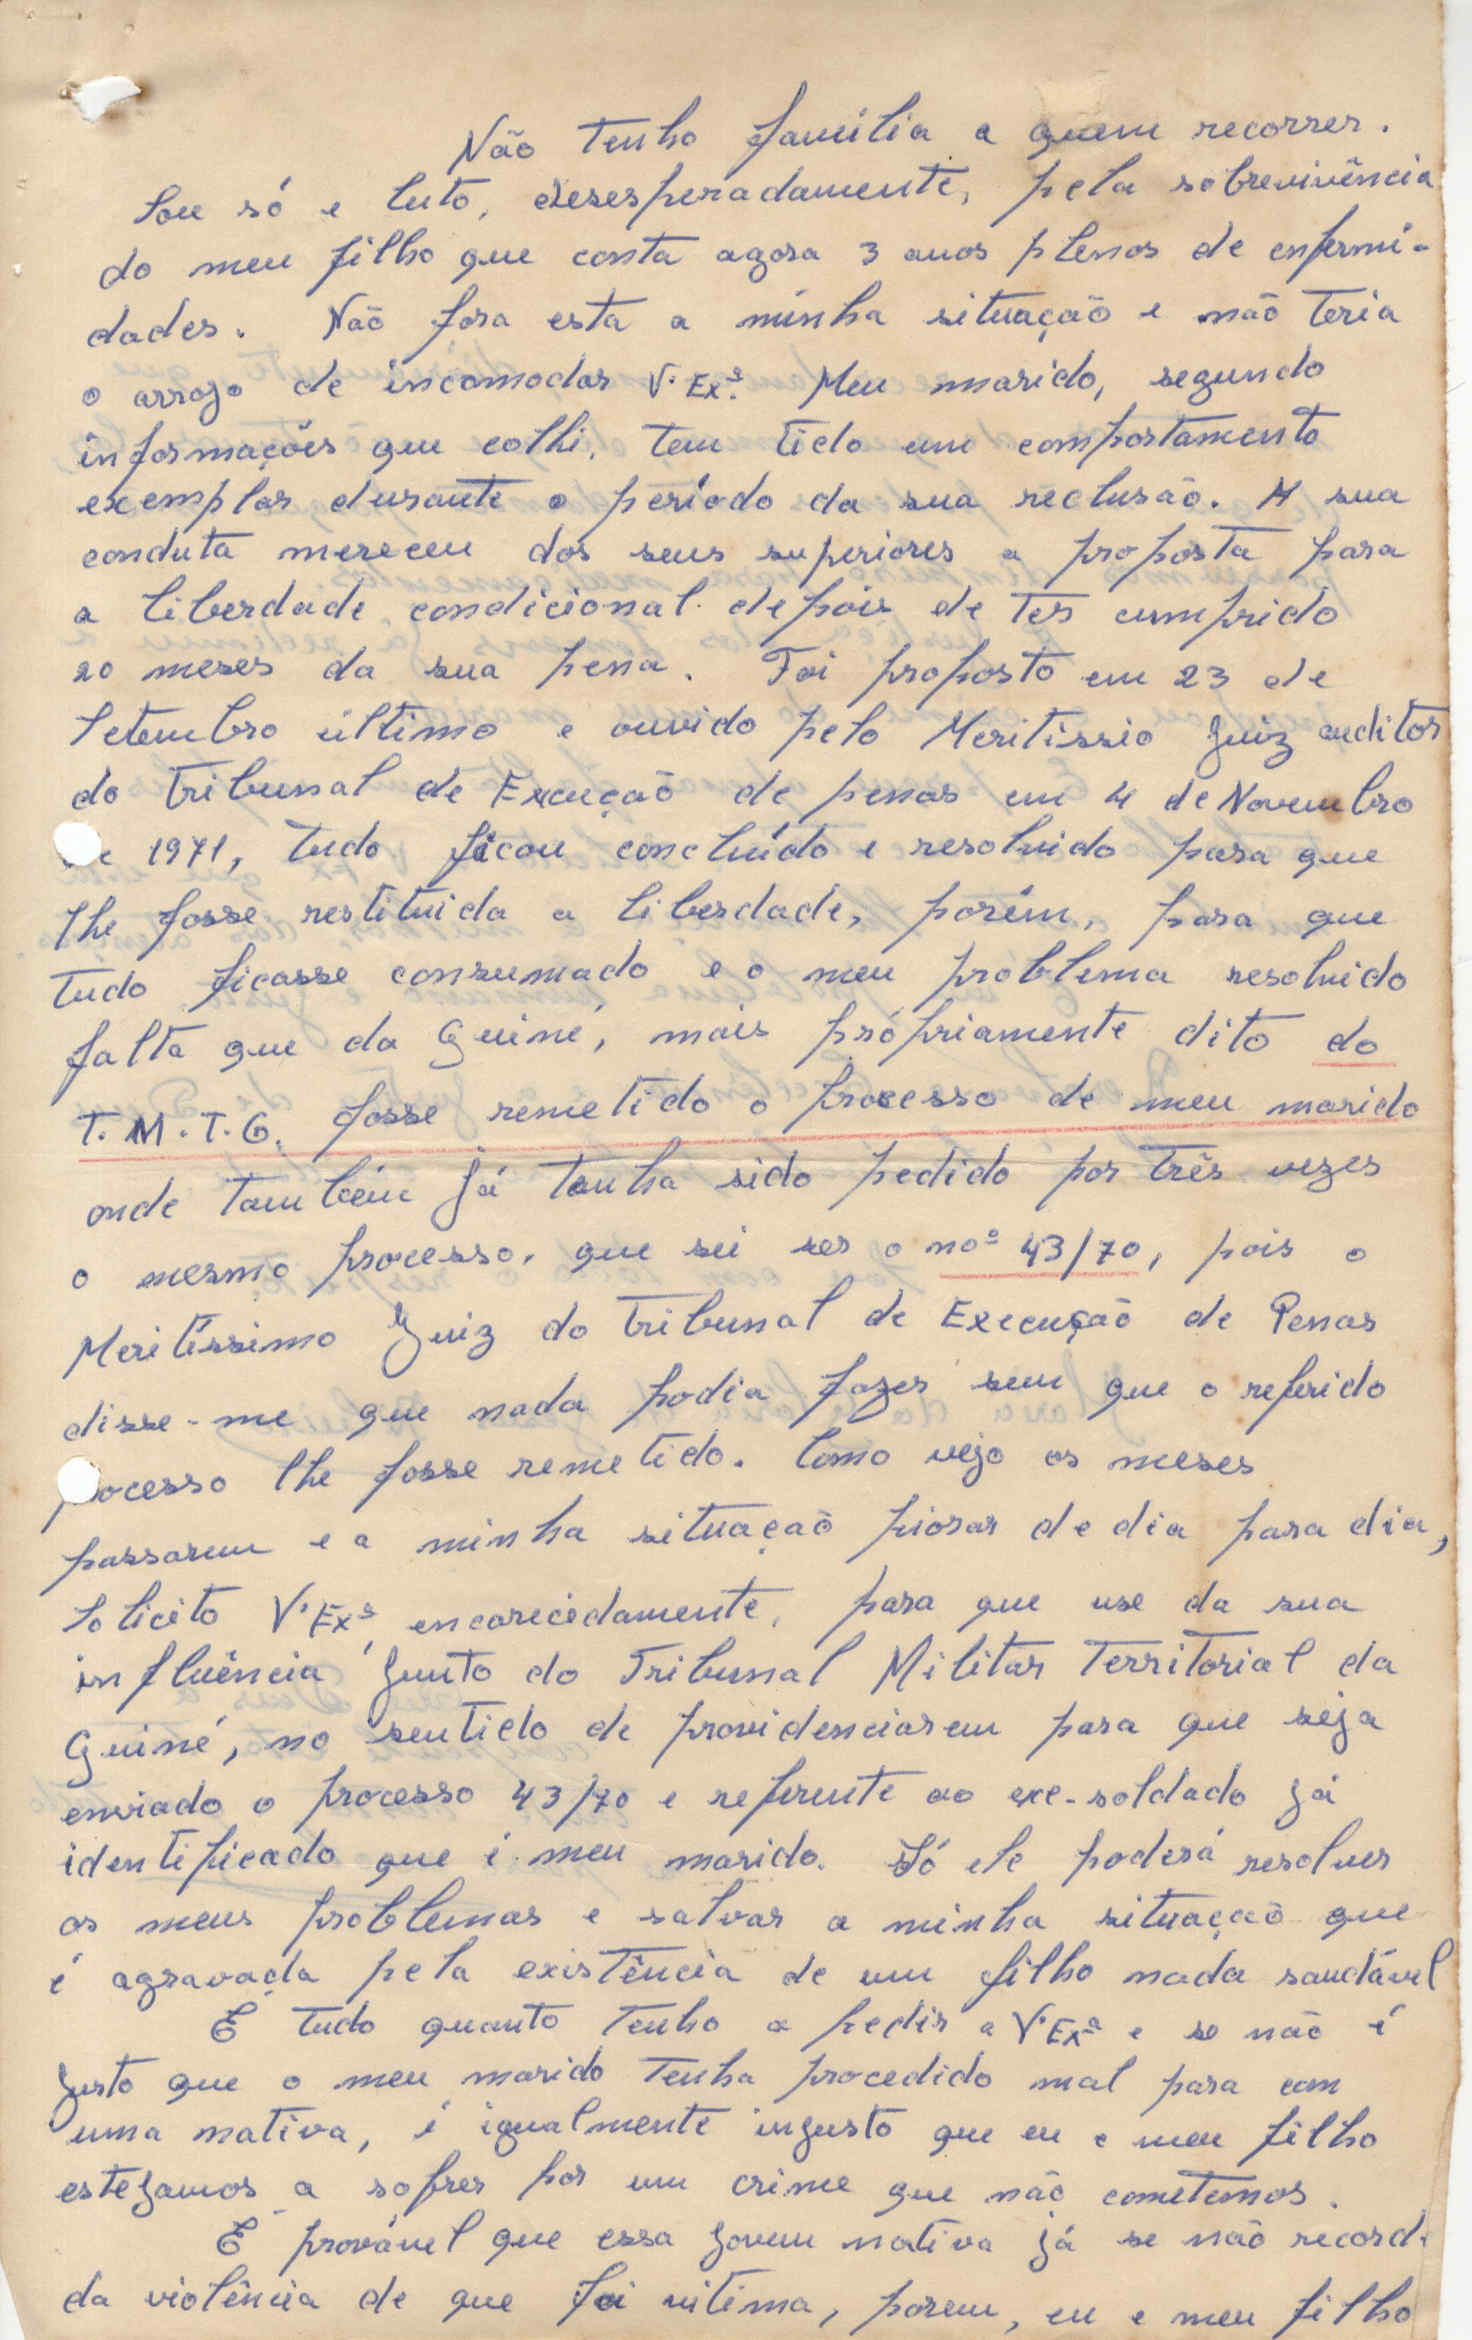 Não tenho familia a quem recorrer.
Sou só e luto, desesperadamente, pela sobrevivência
do meu filho que conta agora 3 anos plenos de enfermi-
dades. Não fora esta a minha situação e não teria
o arrojo de incomodar V. Exª. Meu marido, segundo
informações que colhi, tem tido um comportamento
exemplar durante o período da sua reclusão. A sua
conduta mereceu dos seus superiores a proposta para
a liberdade condicional depois de ter cumprido
20 meses da sua pena. Foi proposto em 23 de
Setembro último e ouvido pelo Meritissio Juiz auditor
do Tribunal de Execução de penas em 4 de Novembro
de 1971, tudo ficou concluído e resolvido para que
lhe fosse restituida a liberdade, porém, para que
tudo ficasse consumado e o meu problema resolvido
falta que da Guiné, mais própriamente dito do
T.M.T.G. fosse remetido o processo de meu marido
onde também já tenha sido pedido por três vezes
o mesmo processo, que sei ser o nº 43/70, pois o
Meritíssimo Juiz do Tribunal de Execução de Penas
disse-me que nada podia fazer sem que o referido
processo lhe fosse remetido. Como vejo os meses
passarem e a minha situação piorar de dia para dia,
Solicito V. Exª, encarecidamente, para que use da sua
influência junto do Tribunal Militar Territorial da
Guiné, no sentido de providenciarem para que seja
enviado o processo 43/70 e referente ao exe-soldado já
identificado que é meu marido. Só ele poderá resolver
os meus problemas e salvar a minha situação que
é agravada pela existência de um filho nada saudável
É tudo quanto tenho a pedir a V. Exª e se não é
justo que o meu marido tenha procedido mal para com
uma nativa, é igualmente injusto que eu e meu filho
estejamos a sofrer por um crime que não cometemos.
É provável que essa jovem nativa já se não recorde
da violência de que foi vitima, porem, eu e meu filho